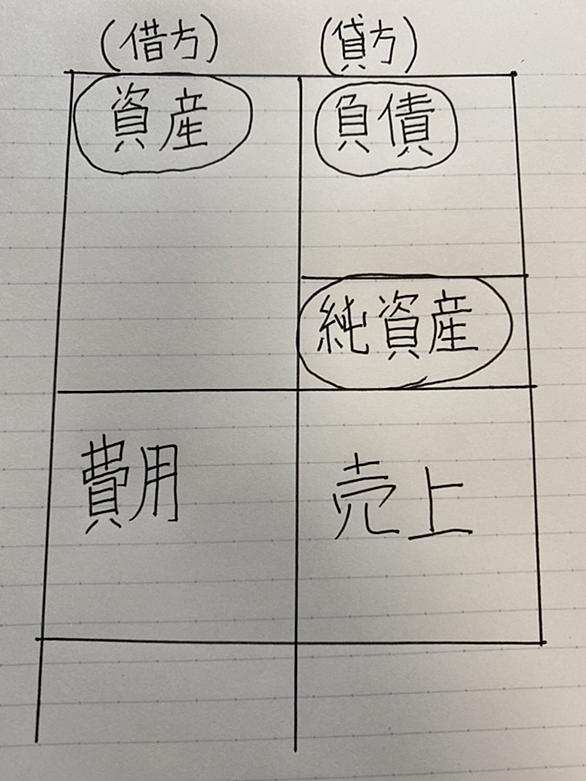 (借方) (貸方)
資産 負債
純資産
費用 売上